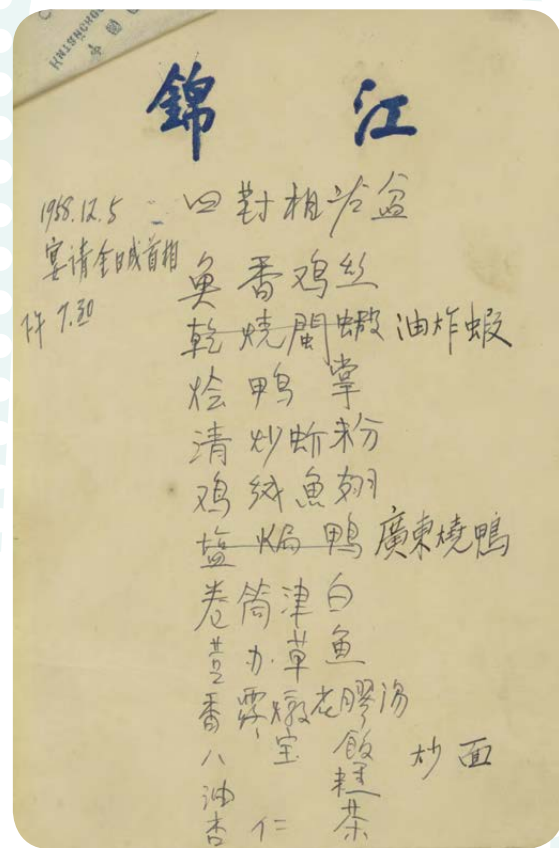 錦江
1958.12.5
宴请金日成首相
下午 7.30
四對相冷盆
魚香鸡丝
乾燒閩蝦 油炸蝦
烩鸭掌
清炒蚧粉
鸡绒魚翅
塩焗鴨 廣東燒鴨
卷筒津白
荳办草魚
香燉花膠汤
八宝飯 炒面
油糕
杏仁茶